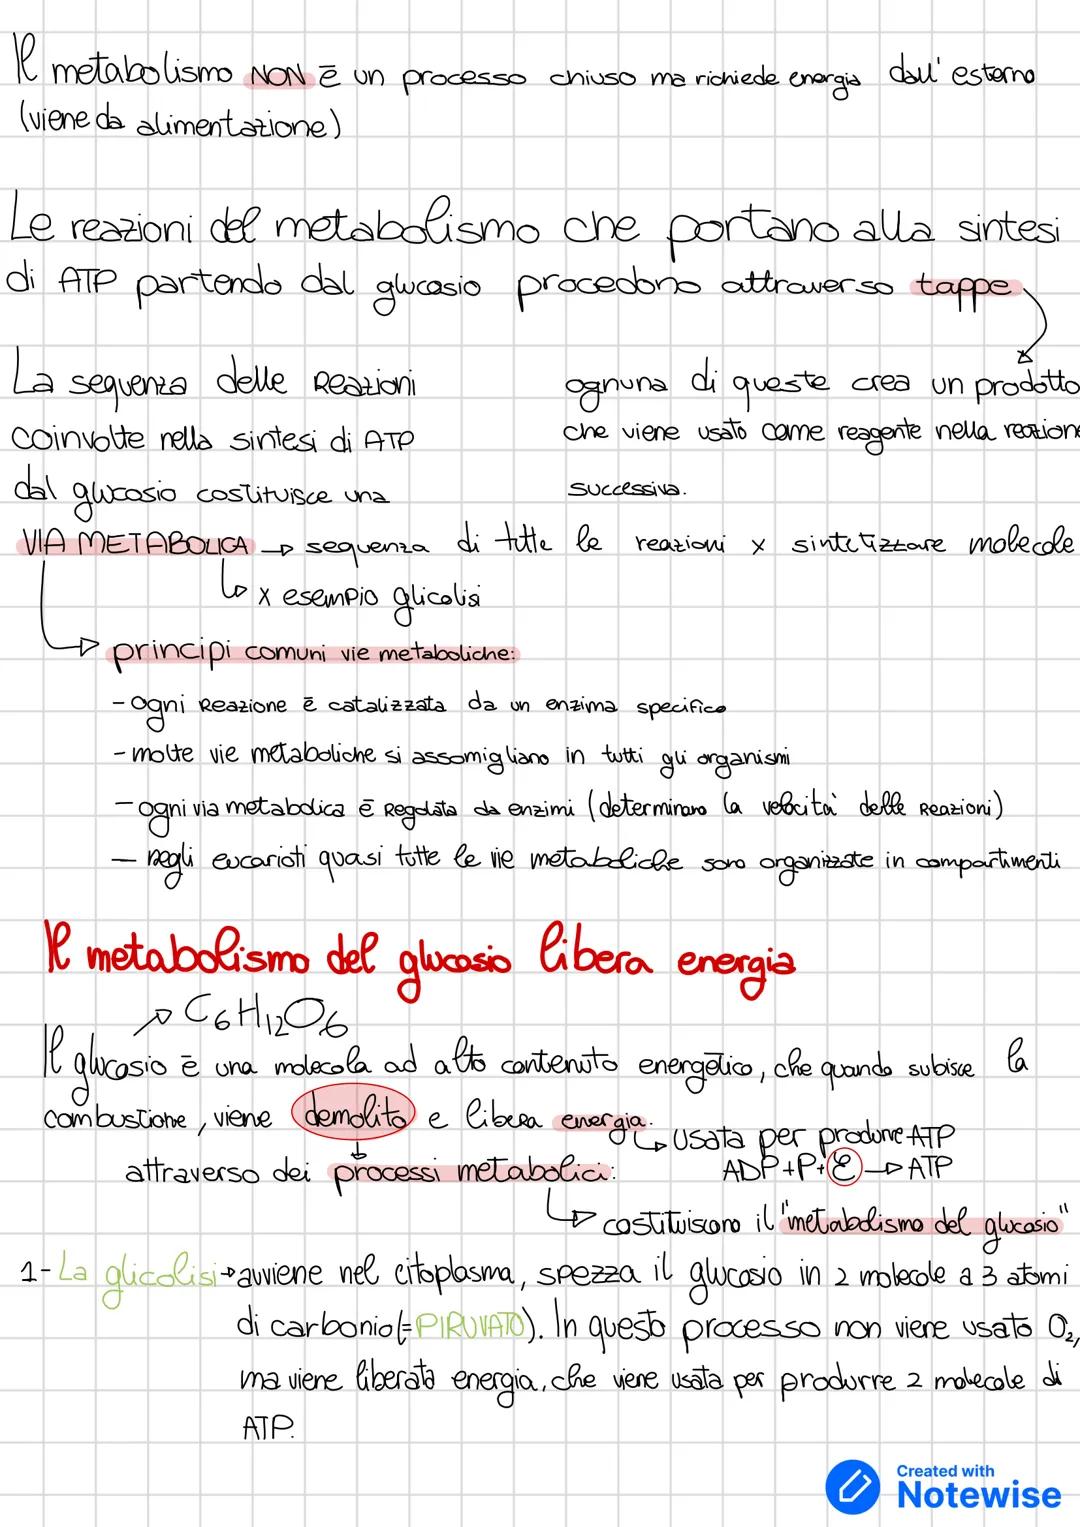 Il metabolismo NON è un processo chiuso ma richiede energia dall'esterno
(viene da alimentazione)
Le reazioni del metabolismo che portano alla sintesi
di ATP partendo dal glucosio procedono attraverso tappe
ognuna di queste crea un prodotto
che viene usato come reagente nella reazione
successiva.
La sequenza delle Reazioni
coinvolte nella sintesi di ATP
dal glucosio costituisce una
VIA METABOLICA → sequenza di tutte le reazioni x sintetizzare molecole
↳ x esempio glicolisi
→ principi comuni vie metaboliche:
- ogni Reazione è catalizzata da un enzima specifico
- molte vie metaboliche si assomigliano in tutti gli organismi
- ogni via metabolica è Regolata da enzimi (determinano la velocità delle Reazioni)
- negli eucarioti quasi tutte le vie metaboliche sono organizzate in compartimenti
Il metabolismo del glucosio libera energia
→ C6H12O6
Il glucosio è una molecola ad alto contenuto energetico, che quando subisce la
combustione, viene demolito e libera energia.
↳ usata per produrre ATP
ADP+P+E → ATP
attraverso dei processi metabolici:
↳ costituiscono il "metabolismo del glucosio"
1- La glicolisi → avviene nel citoplasma, spezza il glucosio in 2 molecole a 3 atomi
di carbonio (=PIRUVATO). In questo processo non viene usato O2,
ma viene liberata energia, che viene usata per produrre 2 molecole di
ATP.
Created with
Notewise